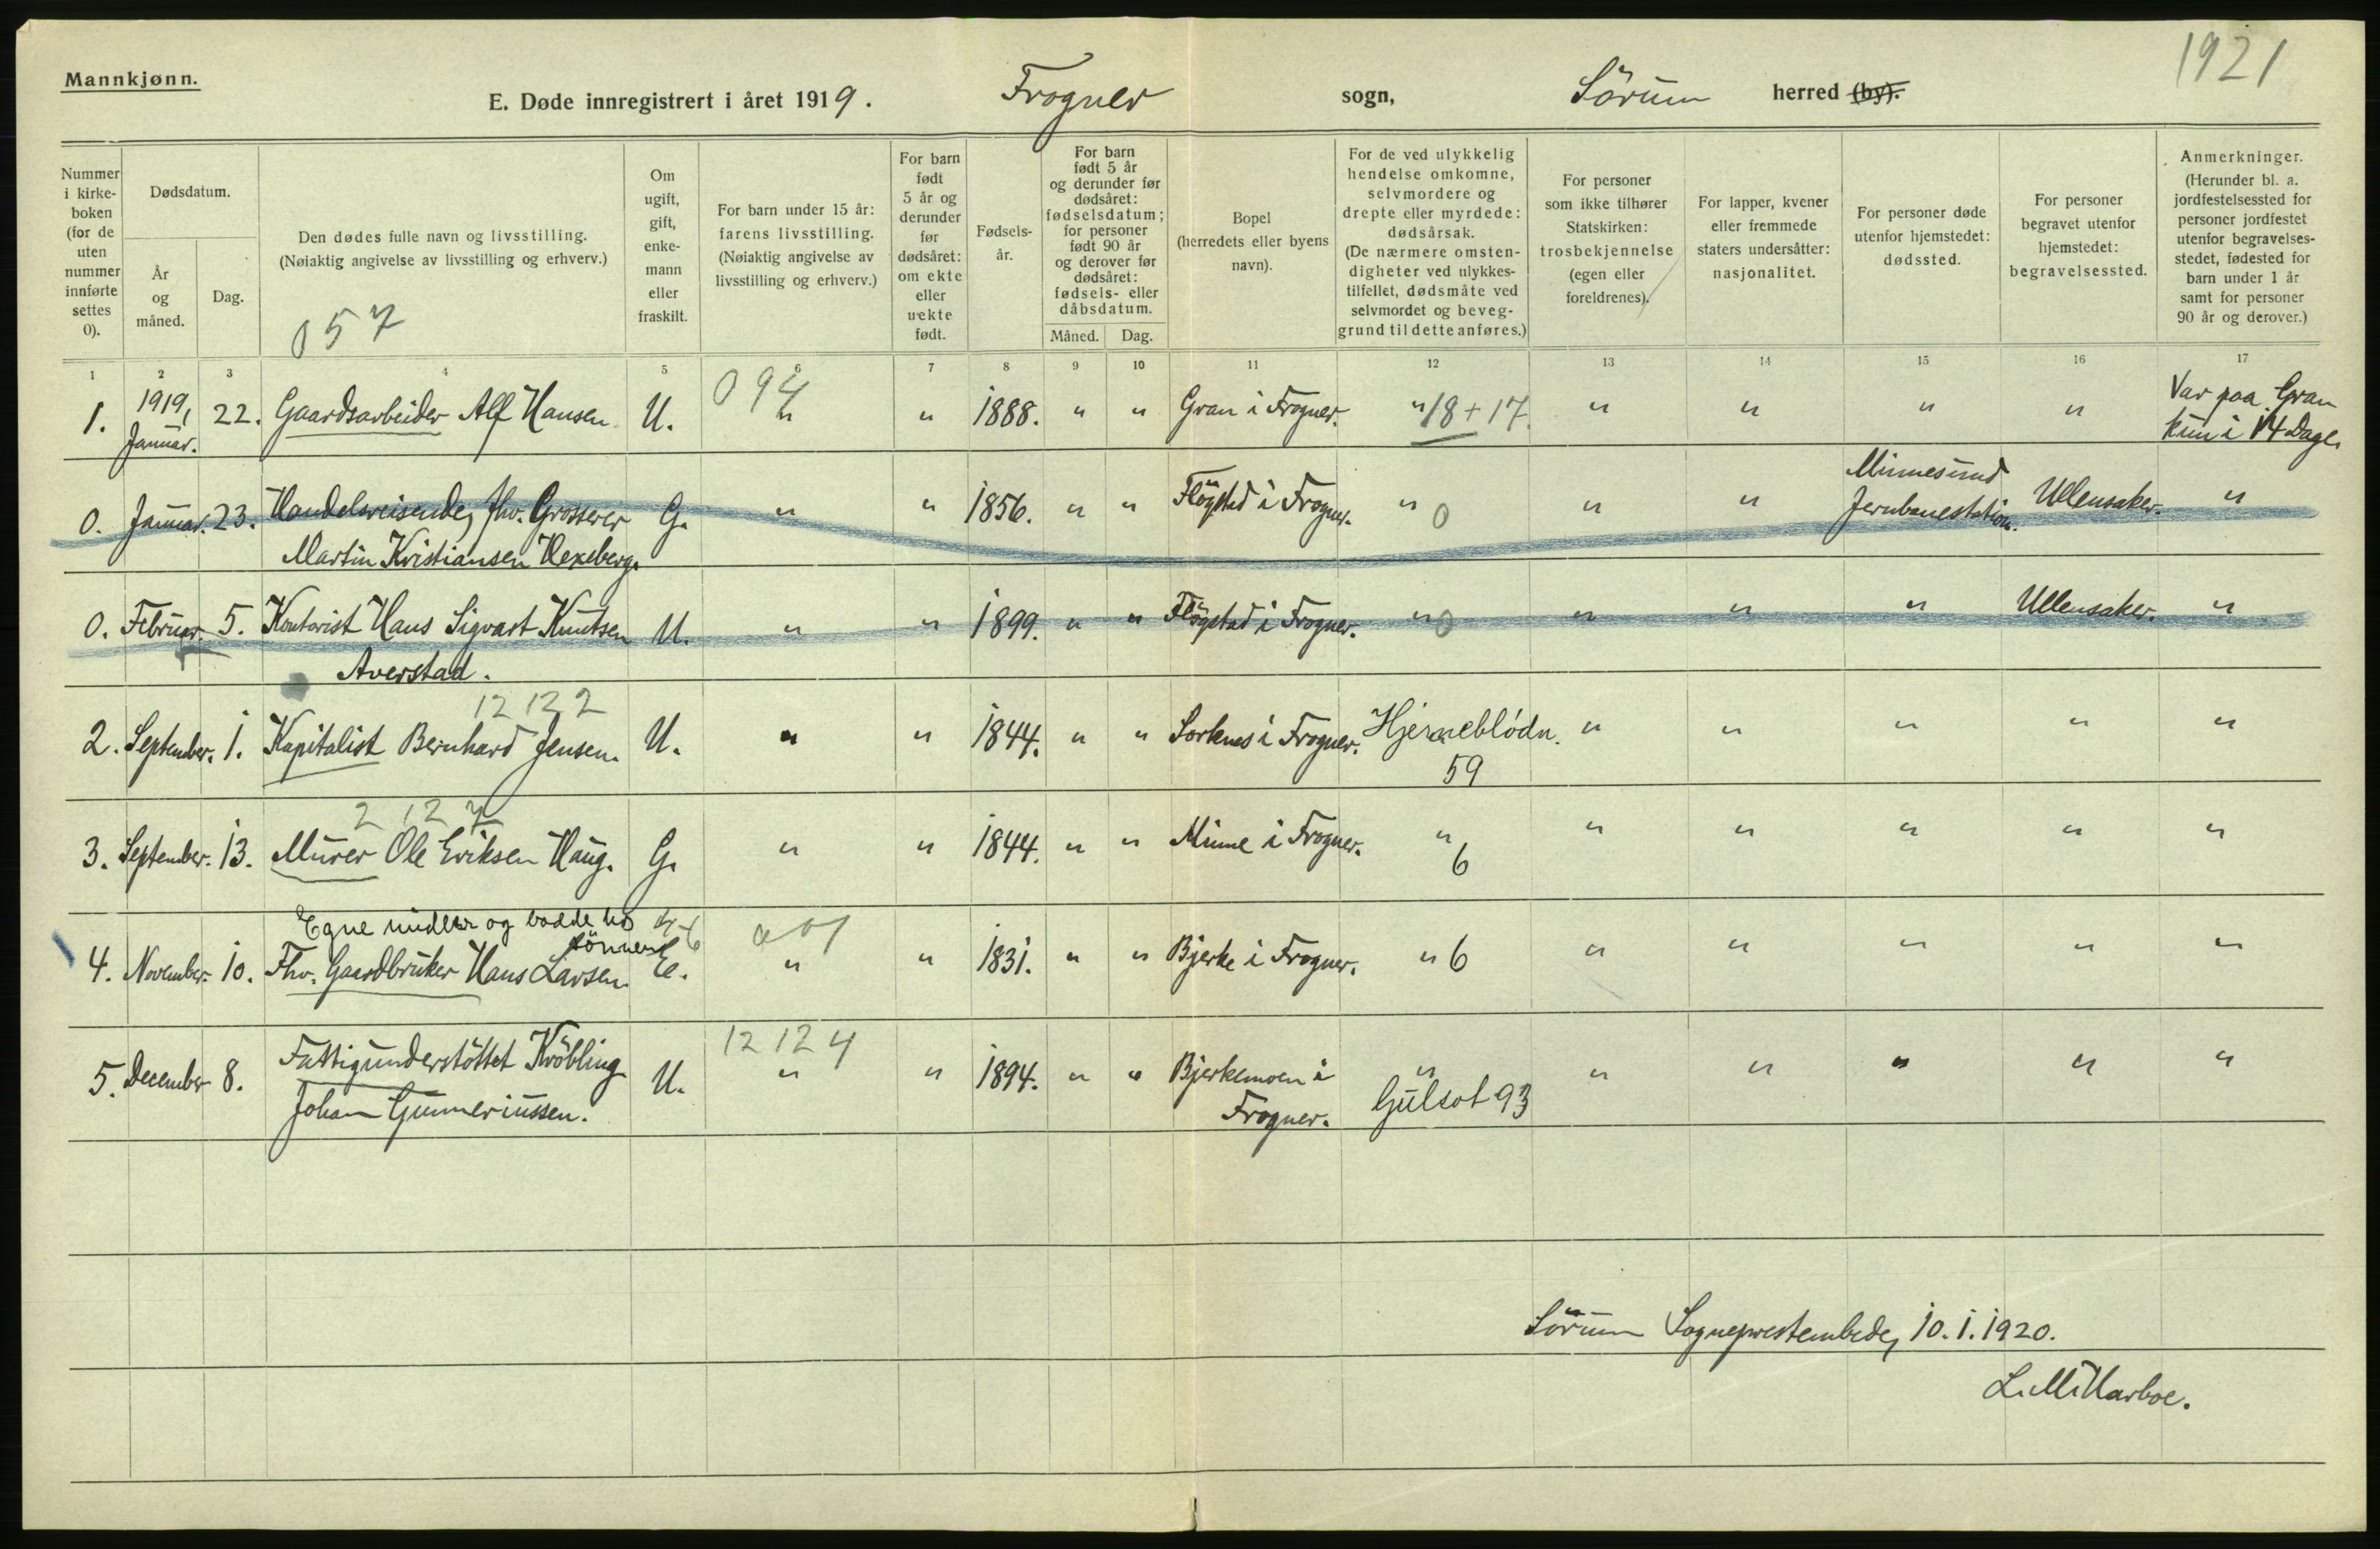 Mannkjønn.
1921
E. Døde innregistrert i året 1919. Frogner sogn, Sörum herred (by).
Nummer i kirke-boken (for de uten nummer innførte settes 0).
Dødsdatum.
År og måned.
Dag.
Den dødes fulle navn og livsstilling.
(Nøiaktig angivelse av livsstilling og erhverv.)
057
Om ugift, gift, enke-mann eller fraskilt.
For barn under 15 år: farens livsstilling.
(Nøiaktig angivelse av livsstilling og erhverv.)
For barn født 5 år og derunder før dødsåret: om ekte eller uekte født.
Fødsels-år.
For barn født 5 år og derunder før dødsåret: fødselsdatum; for personer født 90 år og derover før dødsåret: fødsels- eller dåbsdatum.
Måned. Dag.
Bopel (herredets eller byens navn).
For de ved ulykkelig hendelse omkomne, selvmordere og drepte eller myrdede: dødsårsak.
(De nærmere omsten-digheter ved ulykkes-tilfellet, dødsmåte ved selvmordet og beveg-grund til dette anføres.)
For personer som ikke tilhører Statskirken: trosbekjennelse (egen eller foreldrenes).
For lapper, kvener eller fremmede staters undersåtter: nasjonalitet.
For personer døde utenfor hjemstedet: dødssted.
For personer begravet utenfor hjemstedet: begravelsessted.
Anmerkninger.
(Herunder bl. a. jordfestelsessted for personer jordfestet utenfor begravelses-stedet, fødested for barn under 1 år samt for personer 90 år og derover.)
1 2 3 4 5 6 7 8 9 10 11 12 13 14 15 16 17
094
1. 1919, Januar. 22. Gaardsarbeider Alf Hansen U. " " 1888. " " Gran i Frogner. " 18+17. " " " " Var paa Gran kun i 14 Dage.
0. Januar. 23. Handelsreisende, fhv. Grosserer G. " " 1856. " " Flögstad i Frogner. " 0 " " Minnesund Jernbanestation. Ullensaker. "
Martin Kristiansen Hexeberg.
0. Februar. 5. Kontorist Hans Sigvart Knutsen U. " " 1899. " " Flögstad i Frogner. " 0 " " " Ullensaker. "
Averstad.
12 12 2
2. September. 1. Kapitalist Bernhard Jensen. U. " " 1844. " " Sorknes i Frogner. Hjerneblödn. " " " " "
59
2 12 7
3. September. 13. Murer Ole Eriksen Haug. G. " " 1844. " " Minne i Frogner. " 6 " " " " "
Egne midler og bodde hos
sönnen
4. November. 10. Fhv. Gaardbruker Hans Larsen. E. " " 1831. " " Bjerke i Frogner. " 6 " " " " "
12 12 4
5. December 8. Fattigunderstöttet Kröbling U. " " 1894. " " Bjerkemoen i " " " " " "
Johan Gunneriussen. Frogner. Gulsot 93
Sörum Sogneprestembede, 10.1.1920.
L. M. Harboe.